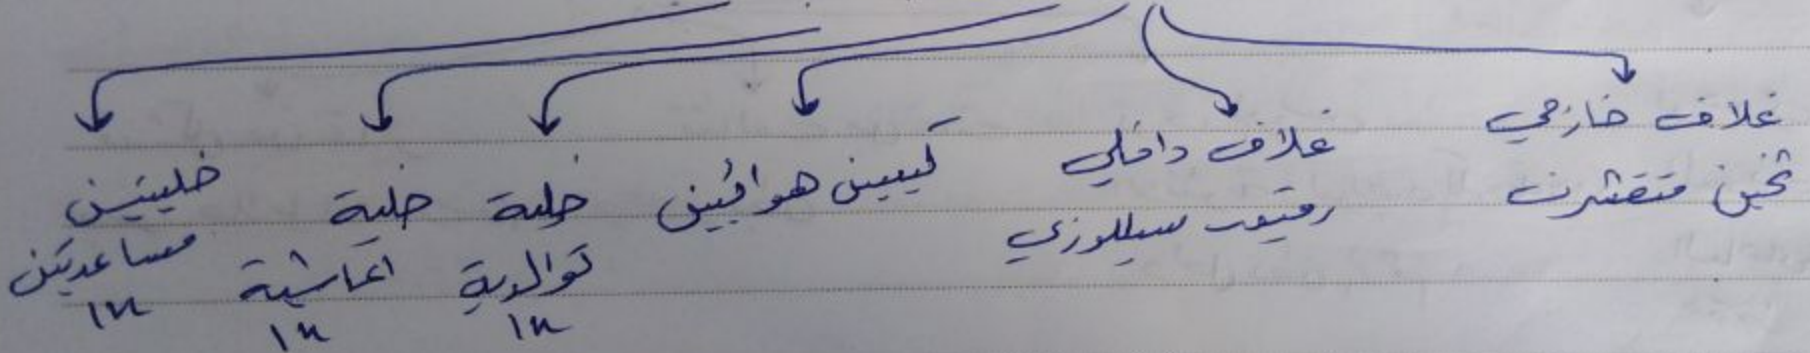 غلاف خارجي
ثخين متقشرن
غلاف داخلي
رقيق سيللوزي
كيسين هوائيين
خلية
توالدية
1n
خلية
اعاشية
1n
خليتين
مساعديتين
1n